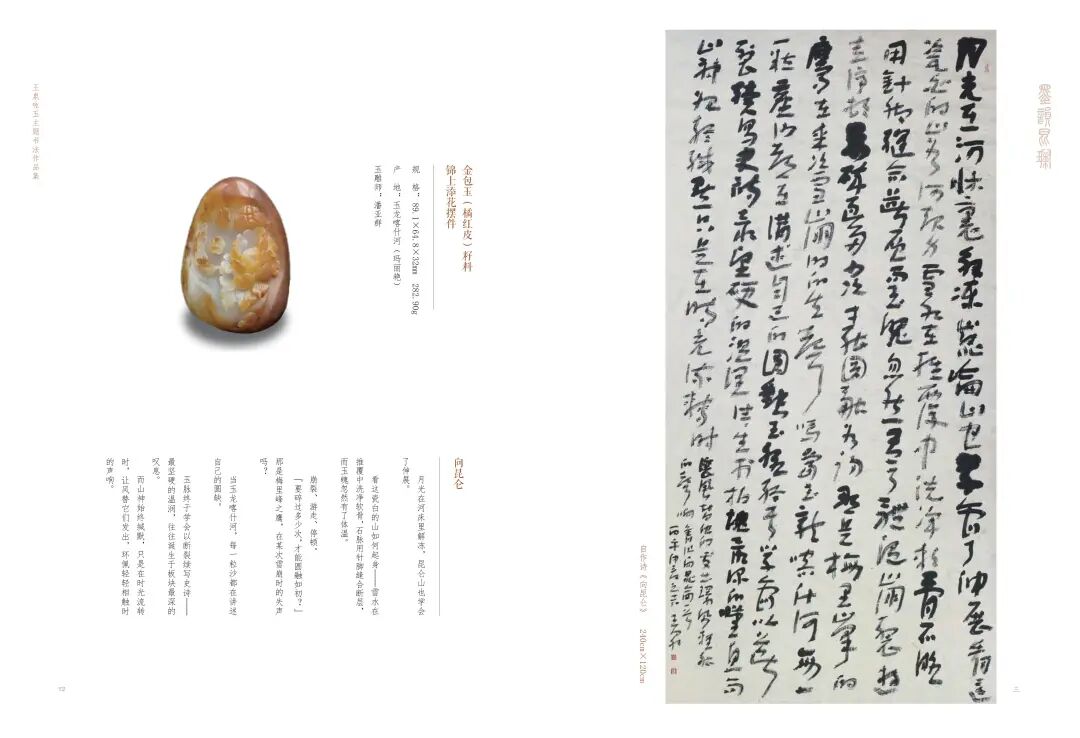 墨韵昆瑚
月光在河床裏解凍崑崙山也學會了伸展看這
瓷白的山如何起身雪水在推覆中洗淨軟骨石脉
用針脚縫合斷層而玉魄忽然有了體温崩裂遊
走停頓要碎過多少次才能圓融如初那是梅里峰的
鷹在某次雪崩時的失聲了嗎當玉龍喀什河每一
粒塵沙都在講述自己的圓缺玉脉終于學會以斷
裂續寫史詩最堅硬的温潤往往生于板塊最深的嘆息而
山神始終緘默只是在時光流轉時
自作诗《向昆仑》 240cm×120cm
三
金包玉（橘红皮）籽料
锦上添花摆件
规 格：89.1×64.8×32mm 282.90g
产 地：玉龙喀什河（玛丽艳）
玉雕师：潘亚群
向昆仑
月光在河床里解冻，昆仑山也学会
了伸展。
看这瓷白的山如何起身——雪水在
推覆中洗净软骨，石脉用针脚缝合断层，
而玉魄忽然有了体温。
崩裂，游走，停顿。
「要碎过多少次，才能圆融如初？」
那是梅里峰之鹰，在某次雪崩时的失声
吗？
当玉龙喀什河，每一粒沙都在讲述
自己的圆缺。
玉脉终于学会以断裂续写史诗——
最坚硬的温润，往往诞生于板块最深的
叹息。
而山神始终缄默，只是在时光流转
时，让风替它们发出，环佩轻轻相触时
的声响。
咏玉主题书法作品集